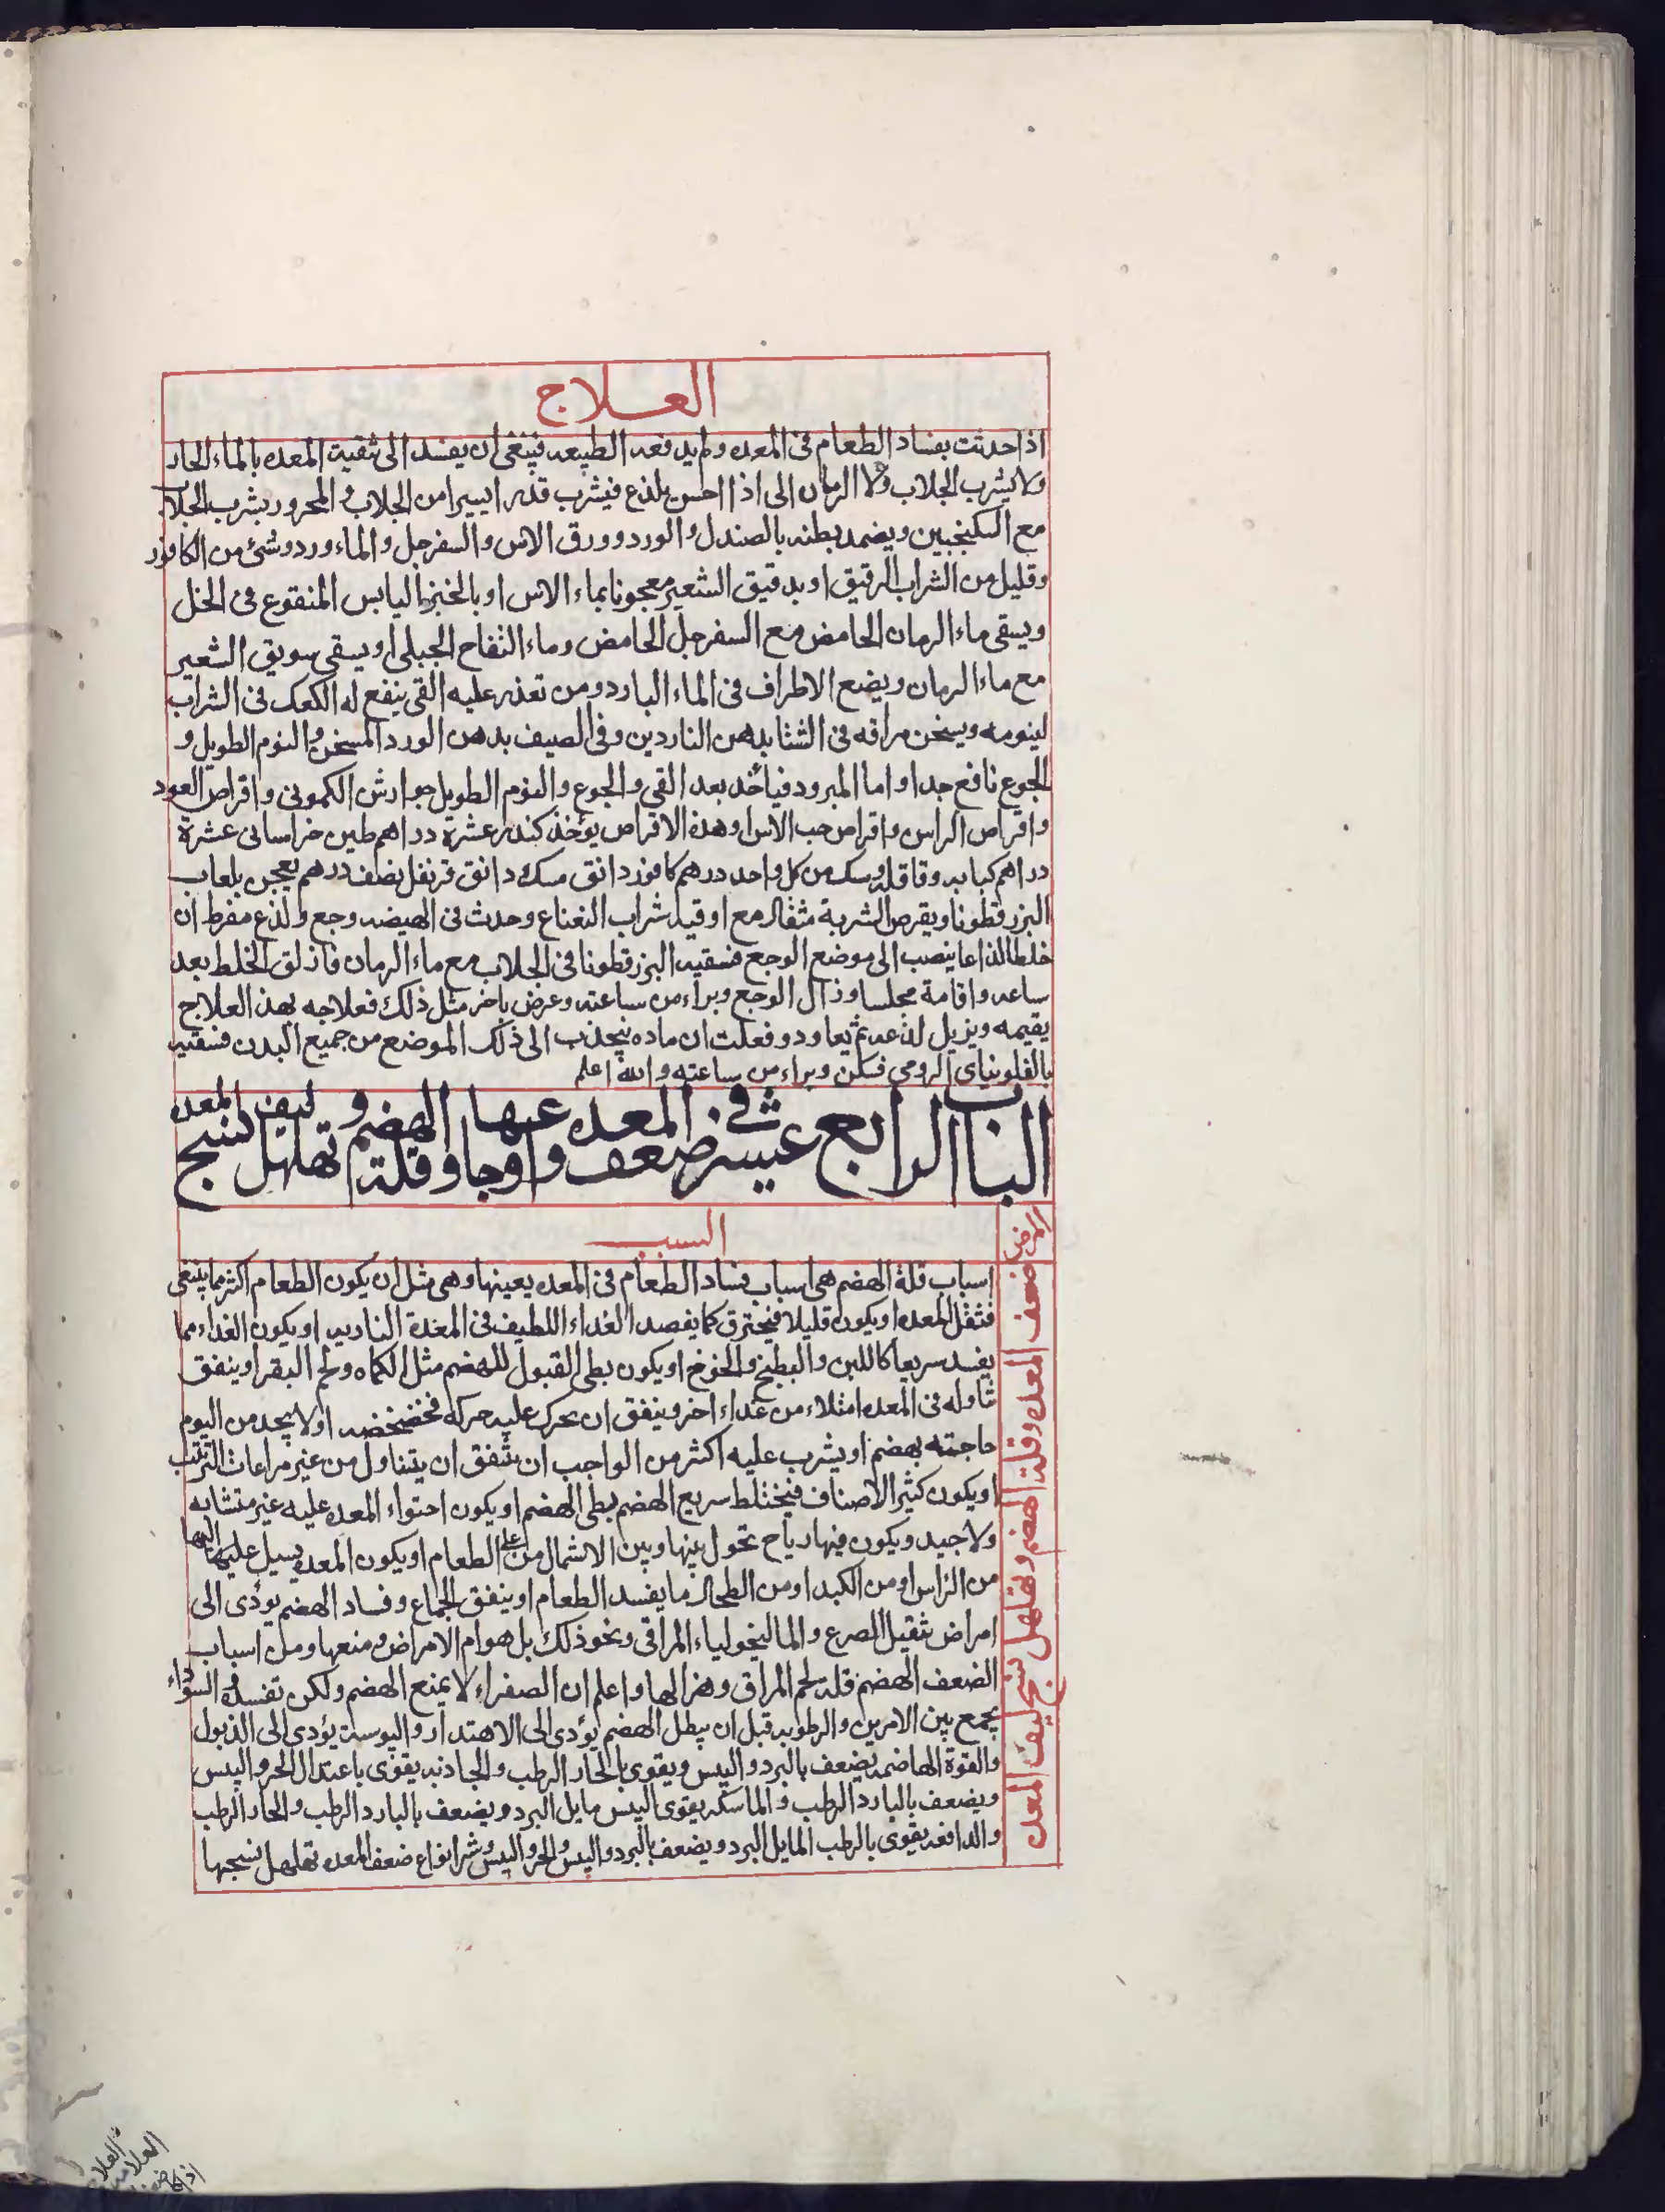 العلاج
اذا حدثت بفساد الطعام فى المعده ولم يدفعه الطبيعه فينبغى ان يفسد الى تنقيت المعده بالماء الحار
ولا يشرب الجلاب ولا الرمان الى اذا احس بلذع فيشرب قدرا يسيرا من الجلاب والمحرور يشرب الجلاب
مع السكنجبين ويضمد بطنه بالصندل والورد وورق الاس والسفرجل والماء ورد وشئ من الكافور
وقليل من الشراب الرقيق او بدقيق الشعير معجونا بماء الاس او بالخبز اليابس المنقوع فى الخل
ويسقى ماء الرمان الحامض مع السفرجل الحامض وماء التفاح الجبلى او يسقى سويق الشعير
مع ماء الرمان ويضع الاطراف فى الماء البارد ومن تعذر عليه القى ينفع له الكعك فى الشراب
لينومه ويسخن مراقه فى الشتا بدهن الناردين وفى الصيف بدهن الورد المسخن والنوم الطويل و
الجوع نافع جدا واما المبرود فياخذ بعد القى والجوع والنوم الطويل جوارش الكمونى واقراص العود
واقراص الراس واقراص حب الاس وهذه الاقراص يؤخذ كندر عشرة دراهم طين خراسانى عشرة
دراهم كبابه وقاقله وسك من كل واحد درهم كافور دانق مسك دانق قرنفل نصف درهم يعجن بلعاب
البزرقطونا ويقرص الشربة مثقال مع اوقيه شراب النعناع وحدث فى الهيضه وجع ولذع مفرط ان
خلطا لذاعا ينصب الى موضع الوجع فسقيه البزرقطونا فى الجلاب مع ماء الرمان فازلق الخلط بعد
ساعه واقامة مجلسا وزال الوجع وبراء من ساعته وعرض باخر مثل ذلك فعلاجه بهذ العلاج
يقيمه ويزيل لذعه ثم يعاود وفعلت ان ماده ينجذب الى ذلك الموضع من جميع البدن فسقيه
بالفلونياى الرومى فسكن وبراء من ساعته والله اعلم
الباب الرابع عشر فى ضعف المعده واوجاعها وقلة الهضم وتهلهل نسج ليف المعده
المرض
السبب
ضعف المعده وقلة الهضم وتهلهل نسج ليف المعده
اسباب قلة الهضم هى اسباب فساد الطعام فى المعده بعينها وهى مثل ان يكون الطعام اكثر مما ينبغى
فثقل المعده او يكون قليلا فيحترق كما يفصد الغداء اللطيف فى المعدة الناريه او يكون الغداء مما
يفسد سريعا كاللبن والبطيخ والخوخ او يكون بطى القبول للهضم مثل الكماه ولحم البقر او ينفق
تناوله فى المعده امتلاء من غداء اخر وينفق ان يحرك عليه حركة فخضخضه او لا يجد من اليوم
حاجته بهضم او يشرب عليه اكثر من الواجب ان يتفق ان يتناول من غير مراعات الترتيب
او يكون كثير الاصناف فيختلط سريع الهضم بطى الهضم او يكون احتواء المعده عليه غير متشابه
ولا جيد ويكون فيها رياح تحول بينها وبين الاشمال من على الطعام او يكون المعده يسيل عليها اليها
من الراس او من الكبد او من الطحال ما يفسد الطعام او ينفق الجماع وفساد الهضم يؤدى الى
امراض تثقيل الصرع والماليخولياء المراقى ونحو ذلك بل هو ام الامراض ومنعها ومن اسباب
الضعف الهضم قلة لحم المراق وهزالها واعلم ان الصفراء لا يمنع الهضم ولكن تفسده والسوداء
يجمع بين الامرين والرطوبه قبل ان يبطل الهضم يؤدى الى الاهتدار واليبوسة يؤدى الى الذبول
والقوة الهاضمه يضعف بالبرد واليبس ويقوى بالحار الرطب والجاذبه يقوى باعتدال الحر واليبس
ويضعف بالبارد الرطب والماسكه يقوى اليبس مايل البرد ويضعف بالبارد الرطب والحار الرطب
والدافعه يقوى بالرطب المايل البرد ويضعف بالبرد واليبس والحر واليبس وشر انواع ضعف المعده تهلهل نسجها